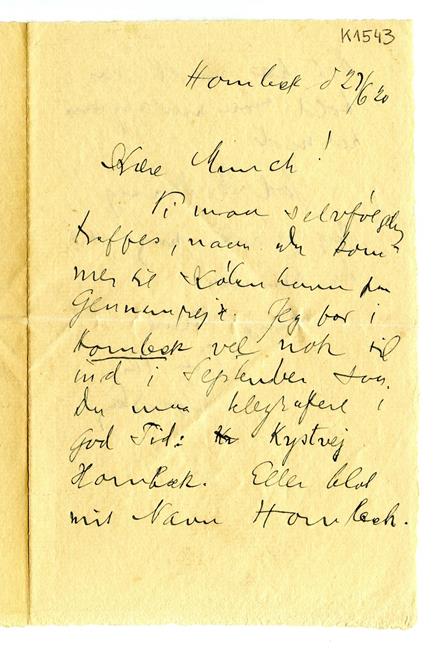 K1543
Hornbæk d 27/6 20
Kære Munch!
Vi maa selvfølgelig
træffes, naar du kom-
mer til København paa
Gennemrejse. Jeg bor i
Hornbæk vel nok til
ind i September saa
Du maa telegrafere i
god Tid: Kystvej
Hornbæk. Eller blot
mit Navn Hornbæk.